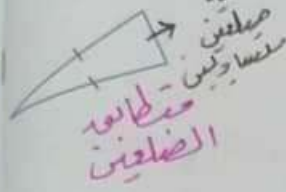 ضلعين
متساويين
متطابق
الضلعين